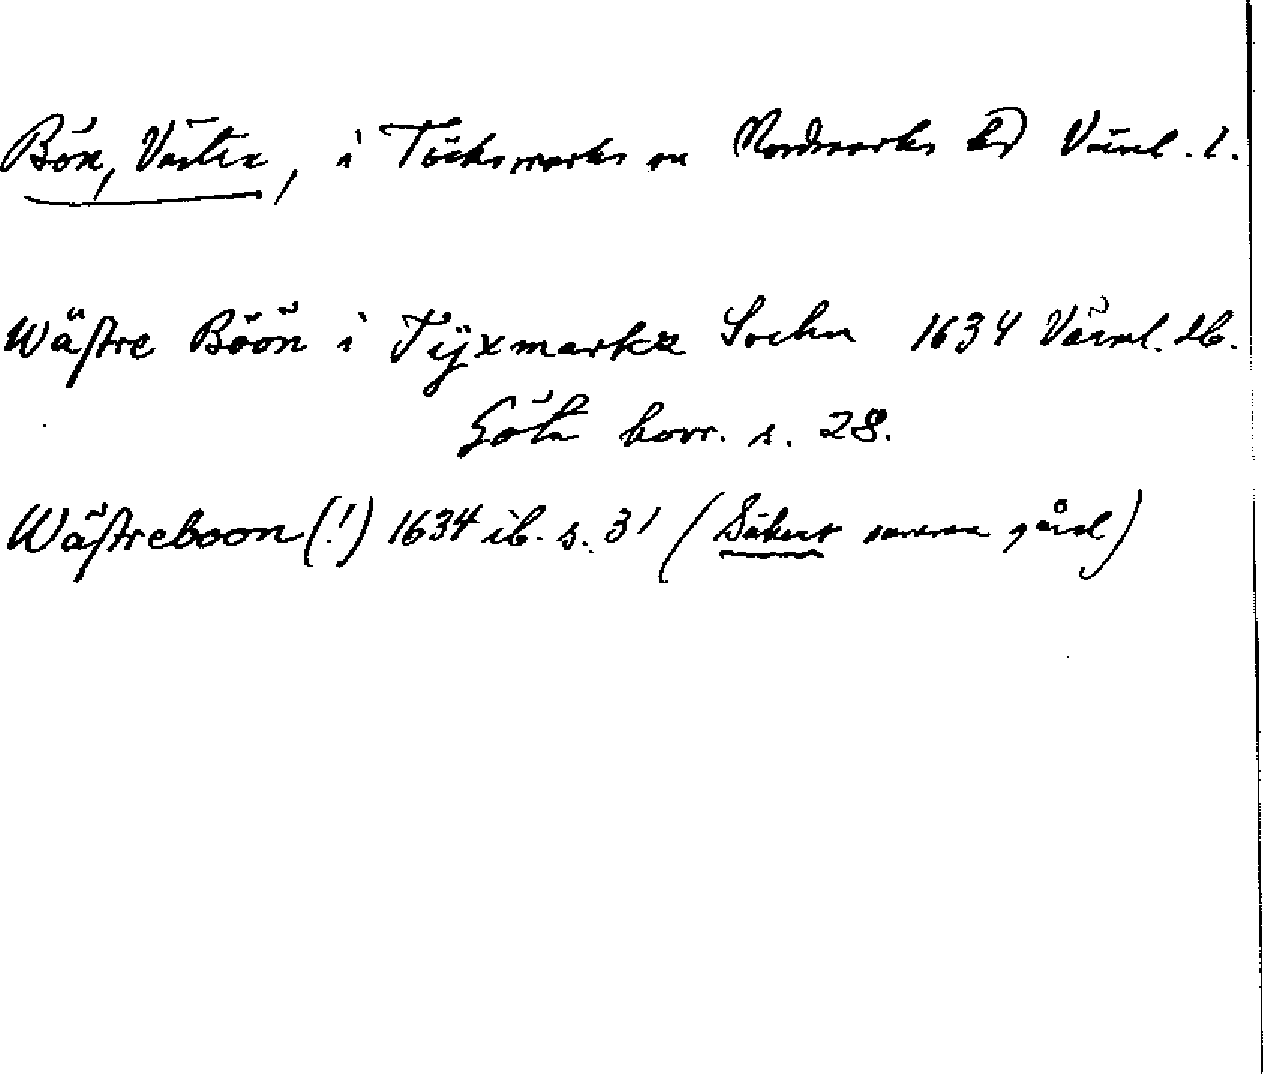 Bön, Västra, i Töcksmarks sn Nordmarks hd Värml. l.
Wästre Böön i Tÿxmarkz Sochn 1634 Värml. lb.
Göta kavr. s. 28.
Wästreboon (!) 1634 ib. s. 31 (Säkert samma gård)